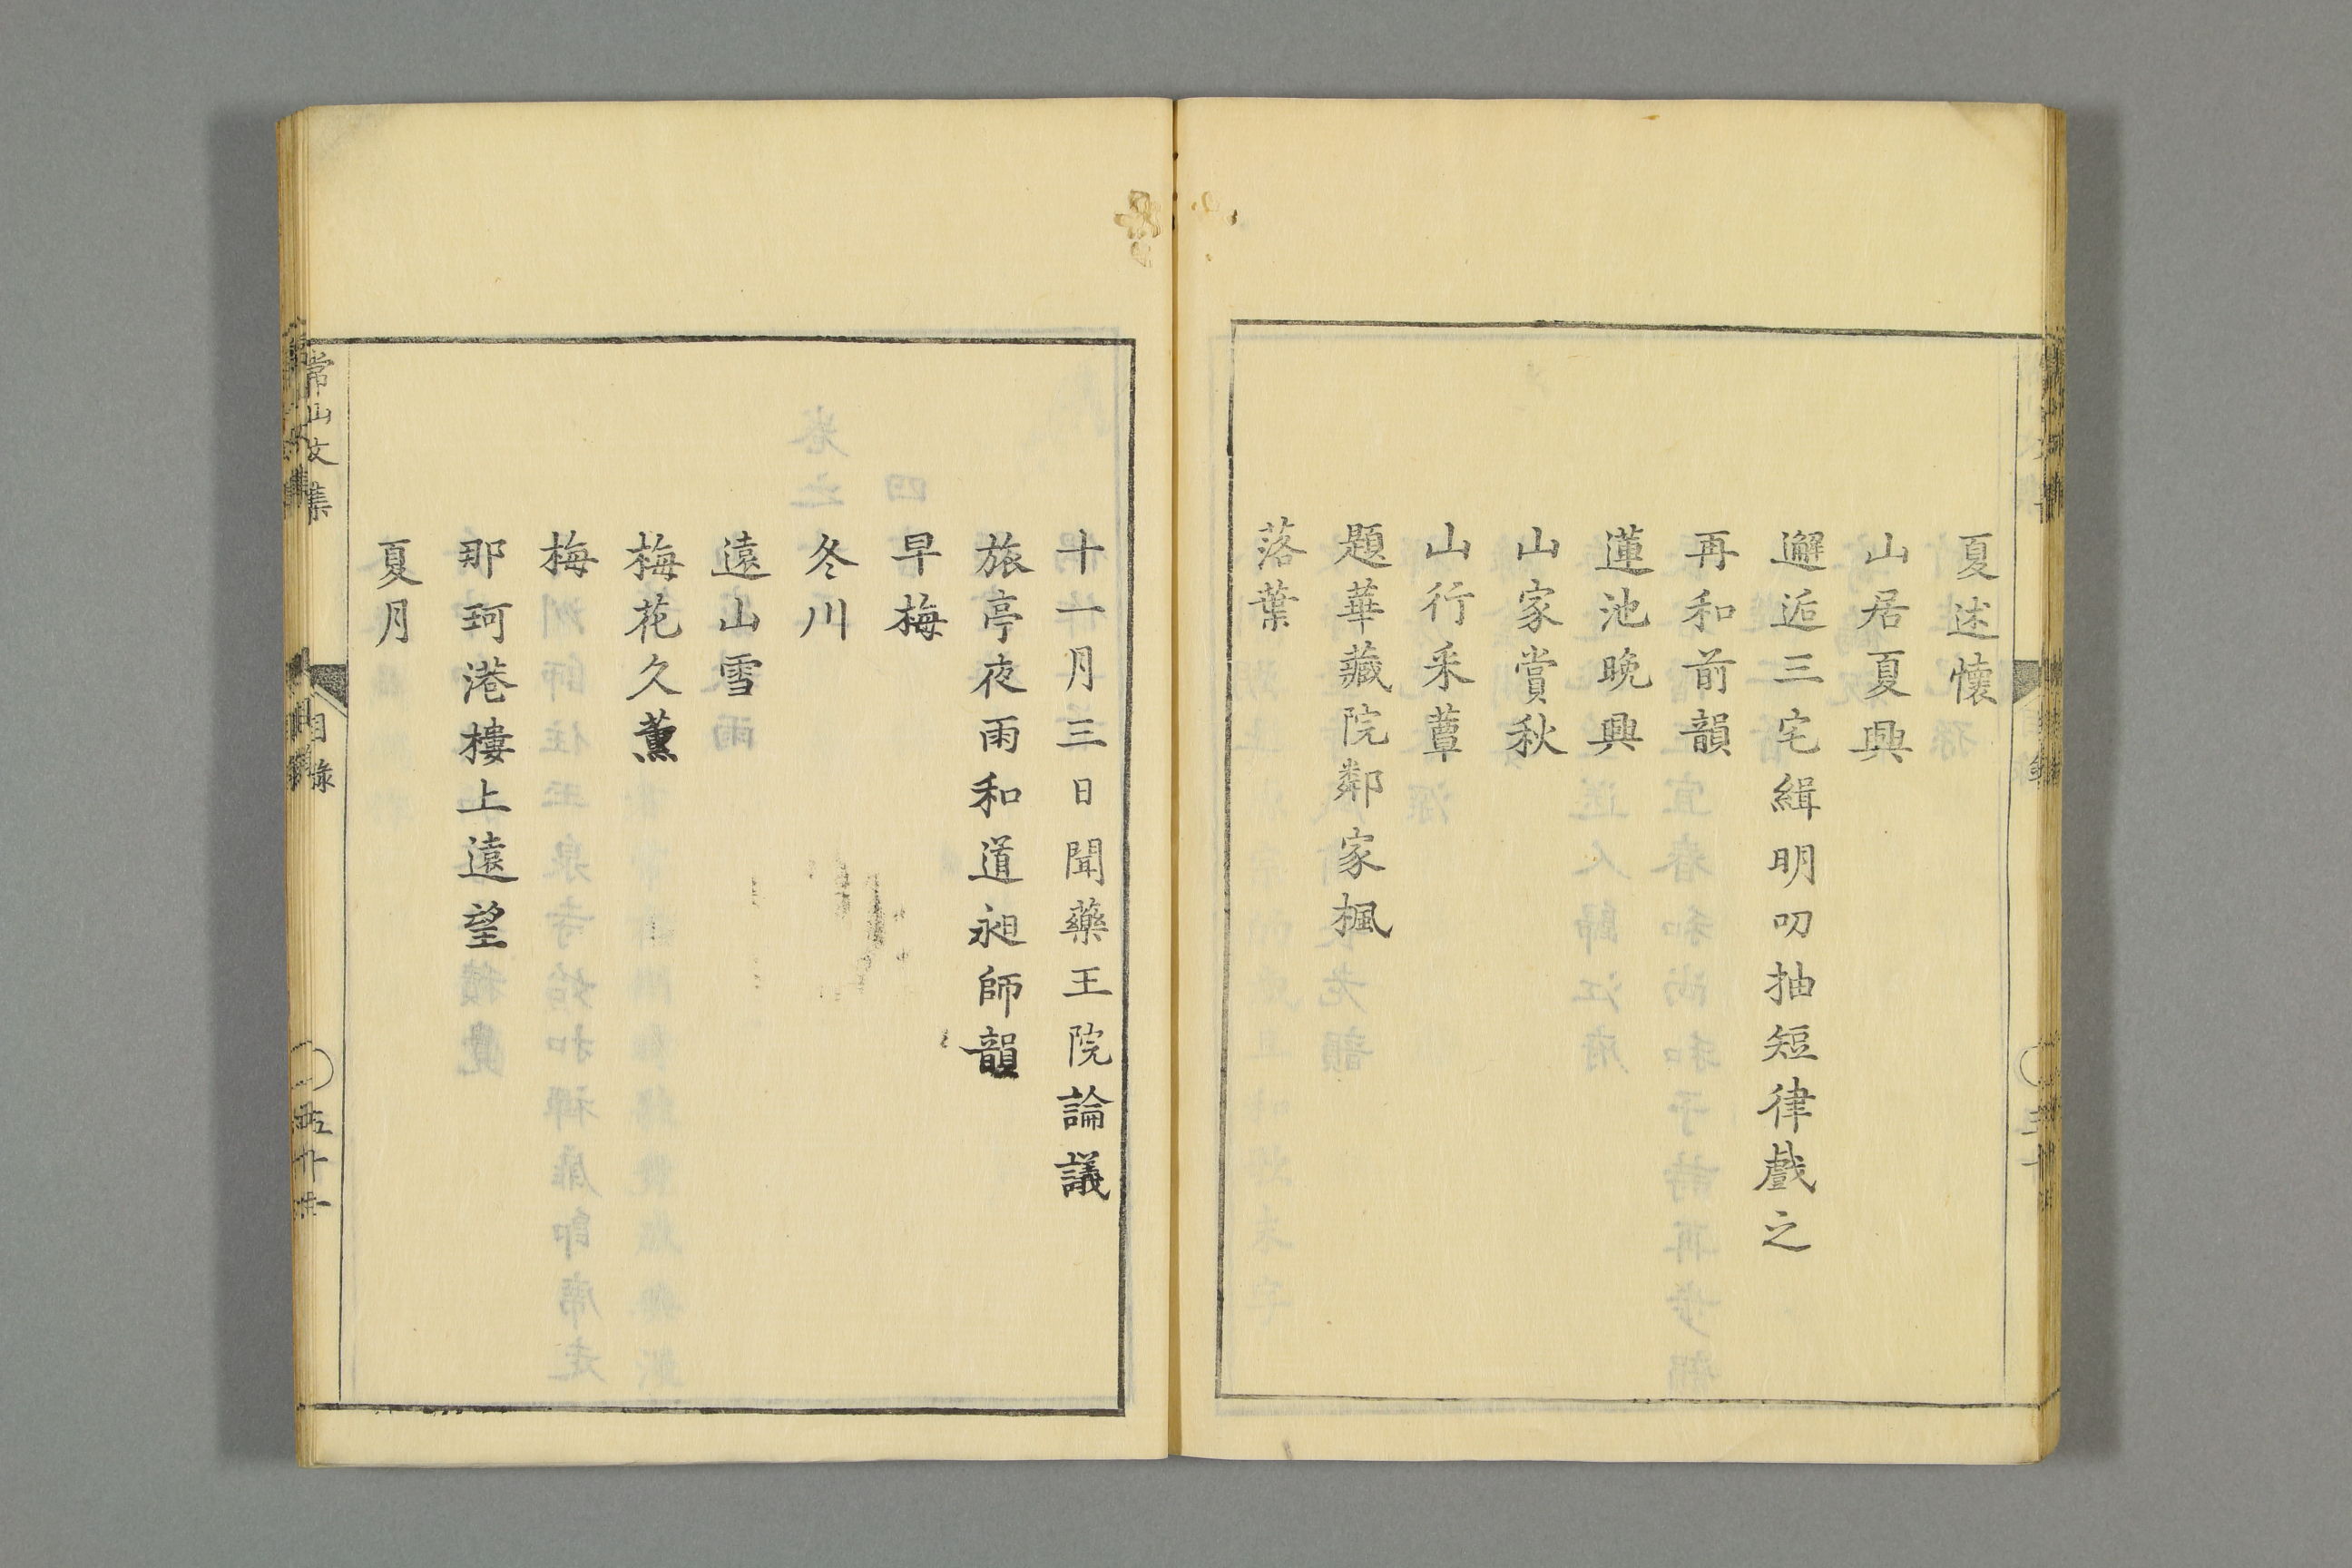 夏述懷
山居夏興
邂逅三宅緝明叨抽短律戲之
再和前韻
蓮池晚興
山家賞秋
山行采蕈
題華藏院鄰家楓
落葉
十一月三日聞藥王院論議
旅亭夜雨和道昶師韻
早梅
冬川
遠山雪
梅花久薰
梅
那珂港樓上遠望
夏月
常山文集
目錄